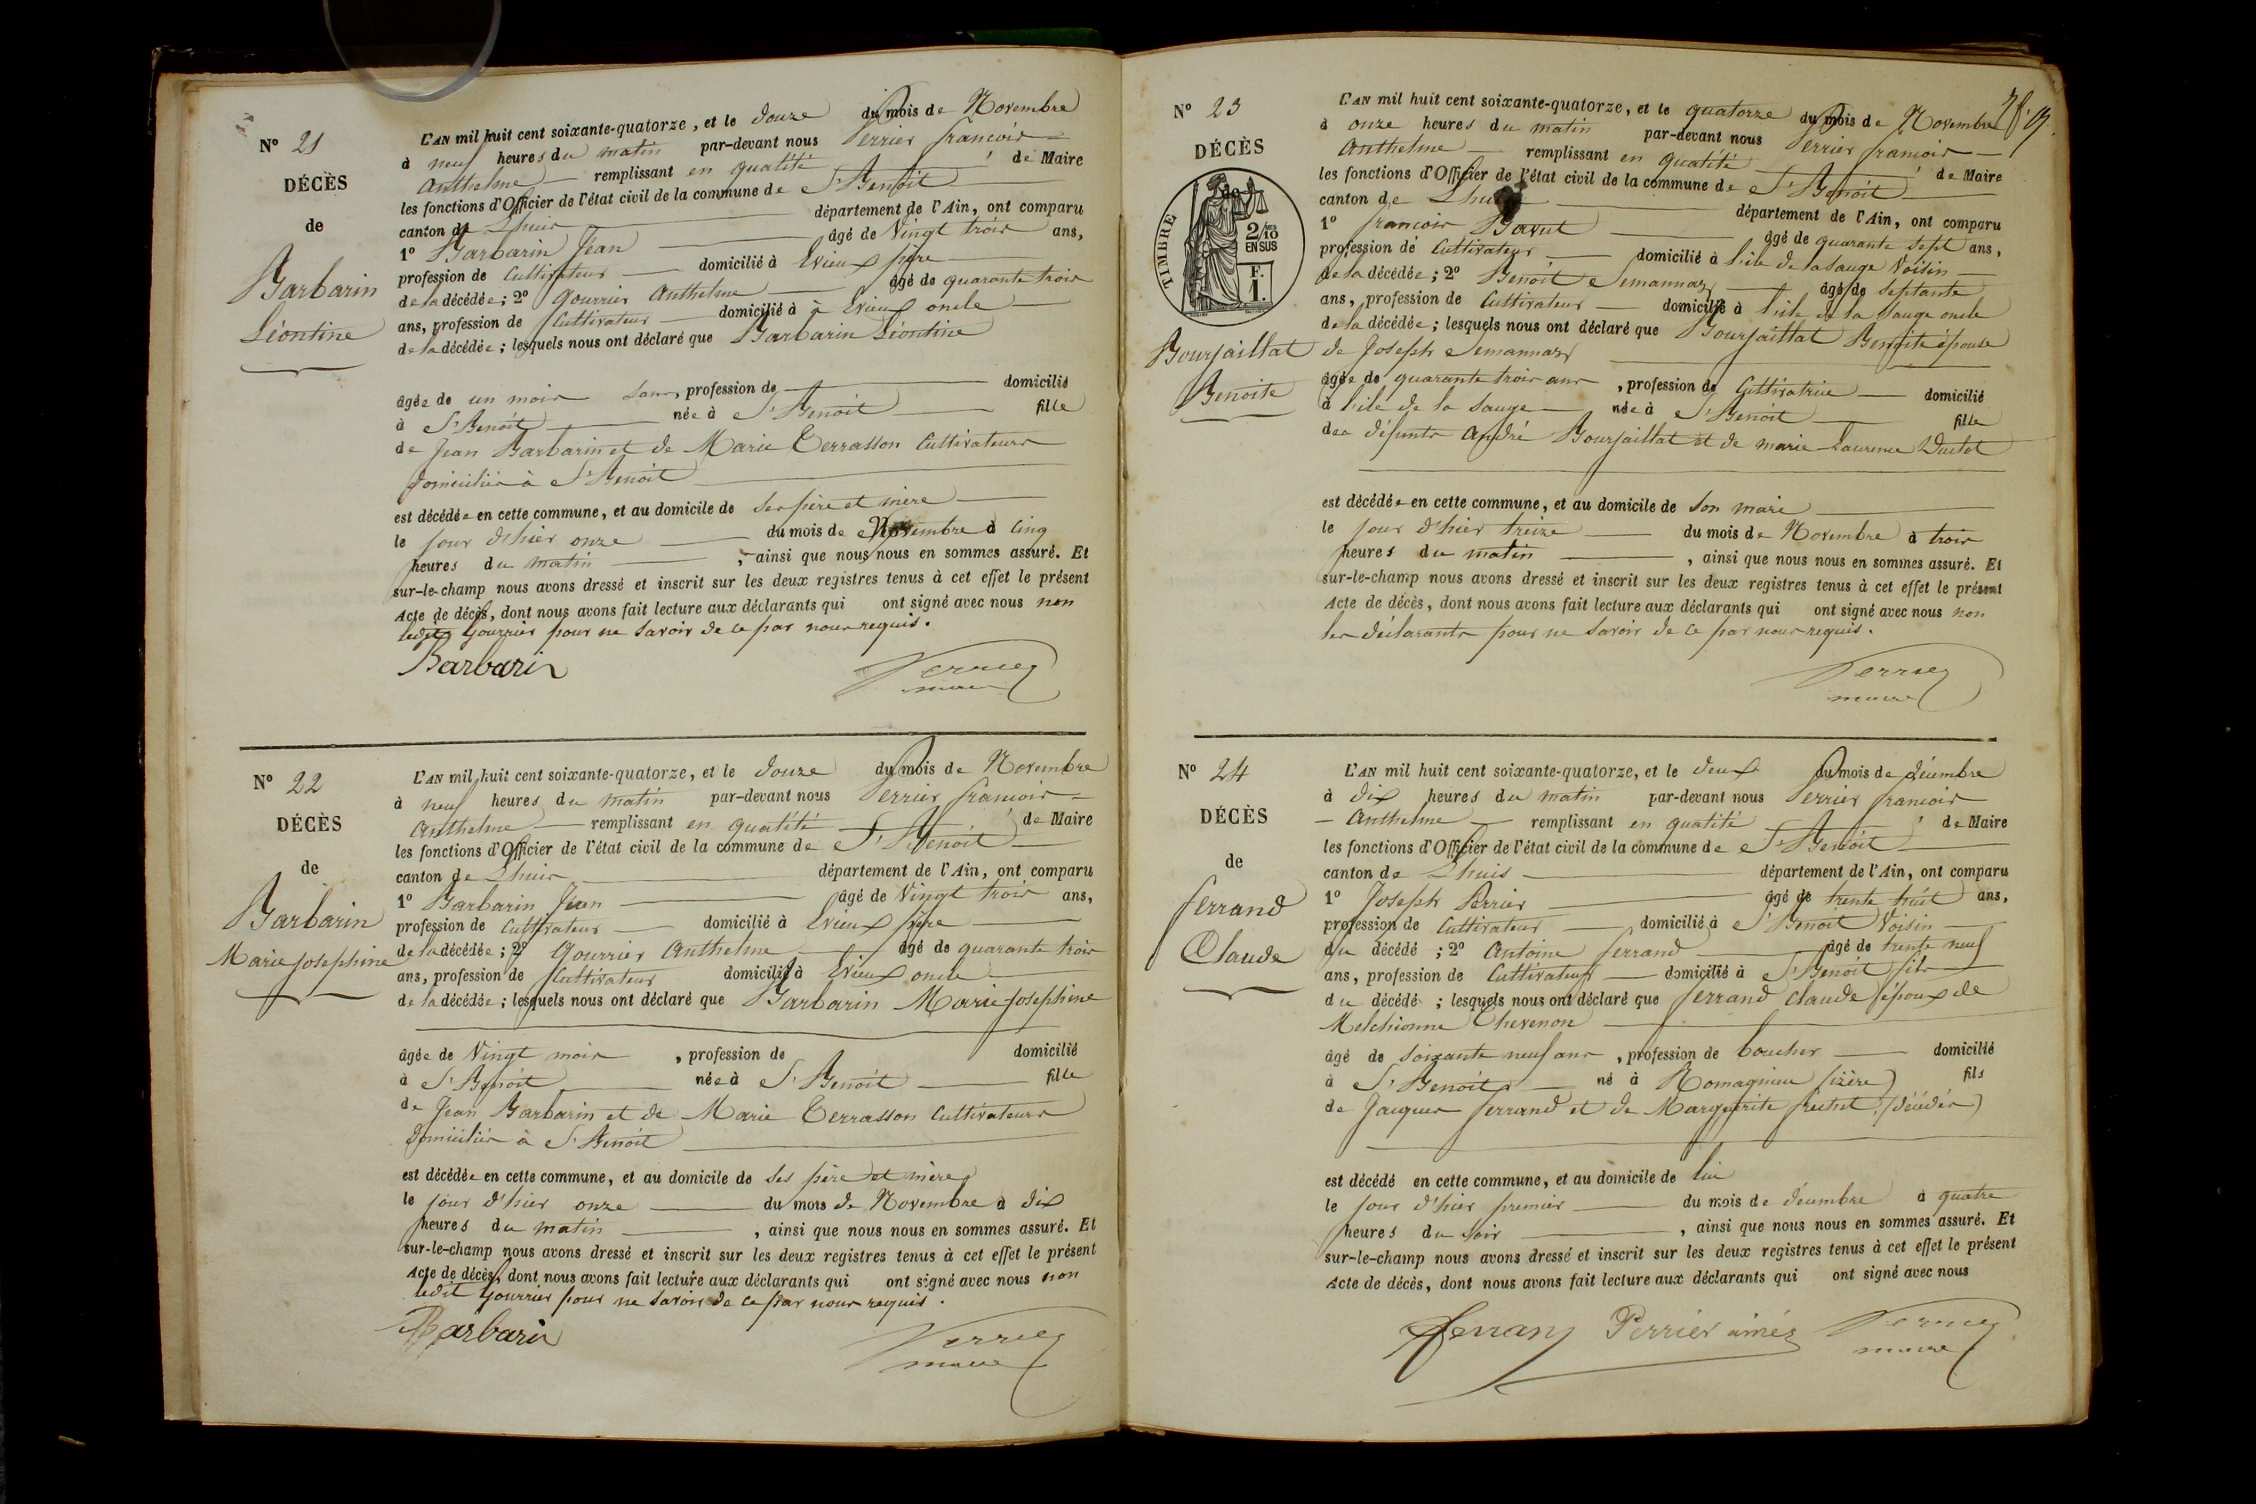 N° 21
DÉCÈS
de
Barbarin
Léontine
L'AN mil huit cent soixante-quatorze, et le douze du mois de Novembre
à neuf heures du matin par-devant nous Perrier françois
Anthelme remplissant en qualité de Maire
les fonctions d'Officier de l'état civil de la commune de St Benoit
canton de Lhuis département de l'Ain, ont comparu
1° Barbarin Jean âgé de Vingt trois ans,
profession de Cultivateur domicilié à Evieux père
de la décédée ; 2° Gourrier Anthelme âgé de quarante trois
ans, profession de Cultivateur domicilié à à Evieux oncle
de la décédée ; lesquels nous ont déclaré que Barbarin Léontine
âgée de un mois sans, profession de domicilié
à St Benoit née à St Benoit fille
de Jean Barbarin et de Marie Terrasson Cultivateurs
domiciliés à St Benoit
est décédée en cette commune, et au domicile de ses père et mère
le jour d'hier onze du mois de Novembre à Cinq
heures du matin , ainsi que nous nous en sommes assuré. Et
sur-le-champ nous avons dressé et inscrit sur les deux registres tenus à cet effet le présent
Acte de décès, dont nous avons fait lecture aux déclarants qui ont signé avec nous non
ledit Gourrier pour ne savoir de ce par nous requis.
Barbarin Perrier
maire
N° 22
DÉCÈS
de
Barbarin
Marie Josephine
L'AN mil huit cent soixante-quatorze, et le douze du mois de Novembre
à neuf heures du matin par-devant nous Perrier françois
Anthelme remplissant en qualité de Maire
les fonctions d'Officier de l'état civil de la commune de St Benoit
canton de Lhuis département de l'Ain, ont comparu
1° Barbarin Jean âgé de Vingt trois ans,
profession de Cultivateur domicilié à Evieux père
de la décédée ; 2° Gourrier Anthelme âgé de quarante trois
ans, profession de Cultivateur domicilié à Evieux oncle
de la décédée ; lesquels nous ont déclaré que Barbarin Marie Josephine
âgée de Vingt mois , profession de domicilié
à St Benoit née à St Benoit fille
de Jean Barbarin et de Marie Terrasson Cultivateurs
domiciliés à St Benoit
est décédée en cette commune, et au domicile de ses père et mère
le jour d'hier onze du mois de Novembre à dix
heures du matin , ainsi que nous nous en sommes assuré. Et
sur-le-champ nous avons dressé et inscrit sur les deux registres tenus à cet effet le présent
Acte de décès, dont nous avons fait lecture aux déclarants qui ont signé avec nous non
ledit Gourrier pour ne savoir de ce par nous requis.
Barbarin Perrier
maire
N° 23
DÉCÈS
de
TIMBRE
2/10
EN SUS
F.
1.
Bourjaillat
Benoite
L'AN mil huit cent soixante-quatorze, et le quatorze du mois de Novembre
à onze heures du matin par-devant nous Perrier françois
Anthelme remplissant en qualité de Maire
les fonctions d'Officier de l'état civil de la commune de St Benoit
canton de Lhuis département de l'Ain, ont comparu
1° françois Bavut âgé de quarante sept ans,
profession de Cultivateur domicilié à l'ile de la Sauge Voisin
de la décédée ; 2° Benoit Semannaz âgé de septante
ans, profession de Cultivateur domicilié à l'ile de la Sauge oncle
de la décédée ; lesquels nous ont déclaré que Bourjaillat Benoite épouse
de Joseph Semannaz
âgée de quarante trois ans , profession de Cultivatrice domicilié
à l'ile de la Sauge née à St Benoit fille
des défunts André Bourjaillat et de marie Laurence
est décédée en cette commune, et au domicile de son mari
le jour d'hier treize du mois de Novembre à trois
heures du matin , ainsi que nous nous en sommes assuré. Et
sur-le-champ nous avons dressé et inscrit sur les deux registres tenus à cet effet le présent
Acte de décès, dont nous avons fait lecture aux déclarants qui ont signé avec nous non
les déclarants pour ne savoir de ce par nous requis.
Perrier
maire
N° 24
DÉCÈS
de
ferrand
Claude
L'AN mil huit cent soixante-quatorze, et le deux du mois de décembre
à dix heures du matin par-devant nous Perrier françois
Anthelme remplissant en qualité de Maire
les fonctions d'Officier de l'état civil de la commune de St Benoit
canton de Lhuis département de l'Ain, ont comparu
1° Joseph Perrier âgé de trente huit ans,
profession de Cultivateur domicilié à St Benoit Voisin
du décédé ; 2° Antoine ferrand âgé de trente neuf
ans, profession de Cultivateur domicilié à St Benoit fils
du décédé ; lesquels nous ont déclaré que ferrand Claude époux de
Melchionne Thevenon
âgé de soixante neuf ans , profession de boucher domicilié
à St Benoit né à Romagnieu (izère) fils
de Jacques ferrand et de Marguerite (décédés)
est décédé en cette commune, et au domicile de lui
le jour d'hier premier du mois de décembre à quatre
heures du soir , ainsi que nous nous en sommes assuré. Et
sur-le-champ nous avons dressé et inscrit sur les deux registres tenus à cet effet le présent
Acte de décès, dont nous avons fait lecture aux déclarants qui ont signé avec nous
ferrand Perrier ainée Perrier
maire